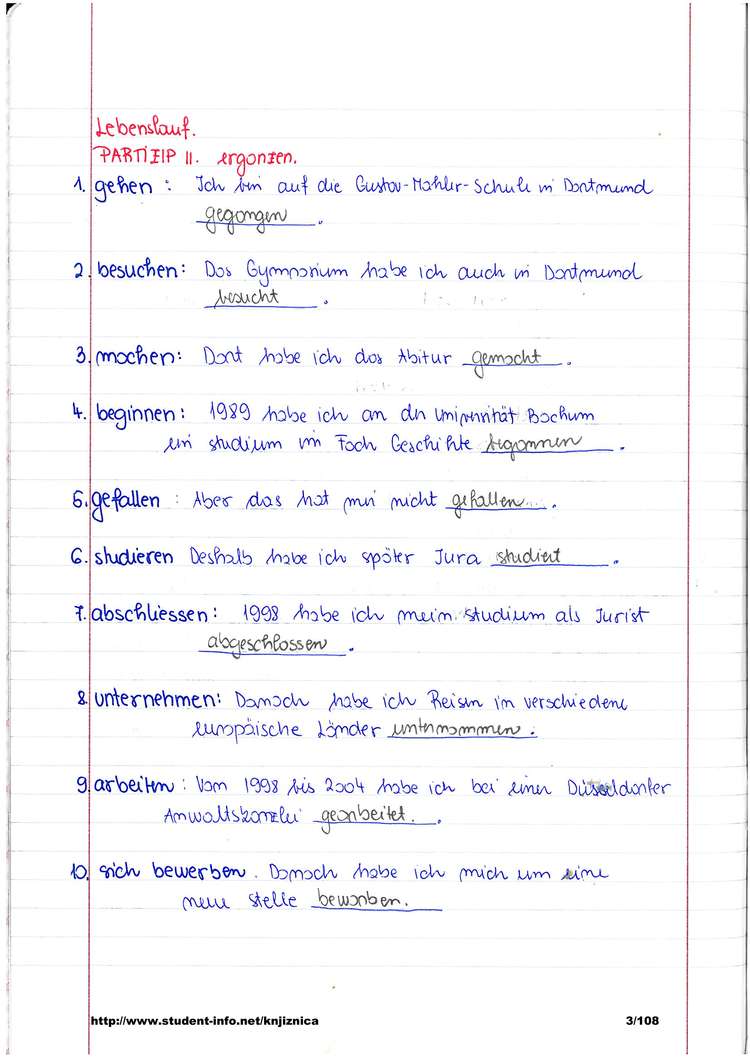 Lebenslauf.
PARTIZIP II. ergänzen.
1. gehen : Ich bin auf die Gustav-Mahler-Schule in Dortmund
gegangen .
2. besuchen: Das Gymnasium habe ich auch in Dortmund
besucht .
3. machen: Dort habe ich das Abitur gemacht .
4. beginnen: 1989 habe ich an der Universität Bochum
ein studium im Fach Geschichte begonnen .
5. gefallen : Aber das hat mir nicht gefallen .
6. studieren Deshalb habe ich später Jura studiert .
7. abschliessen: 1998 habe ich mein studium als Jurist
abgeschlossen .
8. unternehmen: Danach habe ich Reisen in verschiedene
europäische Länder unternommen .
9. arbeiten : Vom 1998 bis 2004 habe ich bei einer Düsseldorfer
Anwaltskanzlei gearbeitet. .
10. sich bewerben . Danach habe ich mich um eine
neue stelle beworben.
http://www.student-info.net/knjiznica 3/108